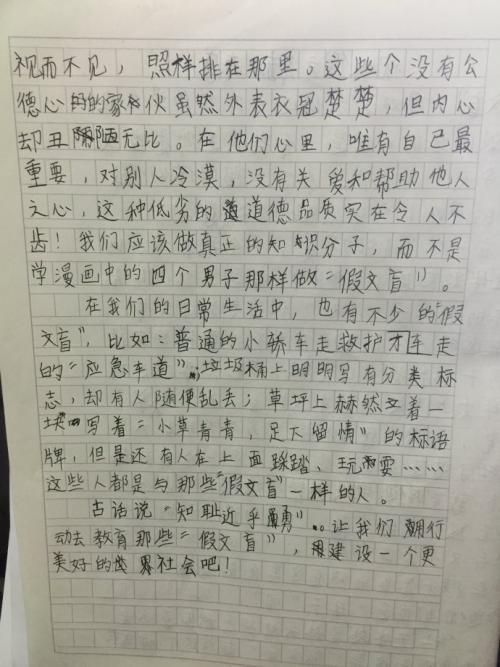 视而不见，照样排在那里。这些个没有公
德心的家伙虽然外表衣冠楚楚，但内心
却丑陋无比。在他们心里，唯有自己最
重要，对别人冷漠，没有关爱和帮助他人
之心，这种低劣的道德品质实在令人不
齿！我们应该做真正的知识分子，而不是
学漫画中的四个男子那样做“假文盲”。
在我们的日常生活中，也有不少的“假
文盲”，比如：普通的小轿车走救护车走
的“应急车道”，垃圾桶上明明写有分类标
志，却有人随便乱丢；草坪上赫然立着一
块写着“小草青青，足下留情”的标语
牌，但是还有人在上面踩踏、玩耍……
这些人都是与那些“假文盲”一样的人。
古话说“知耻近乎勇”。让我们用行
动去教育那些“假文盲”，建设一个更
美好的世界社会吧！